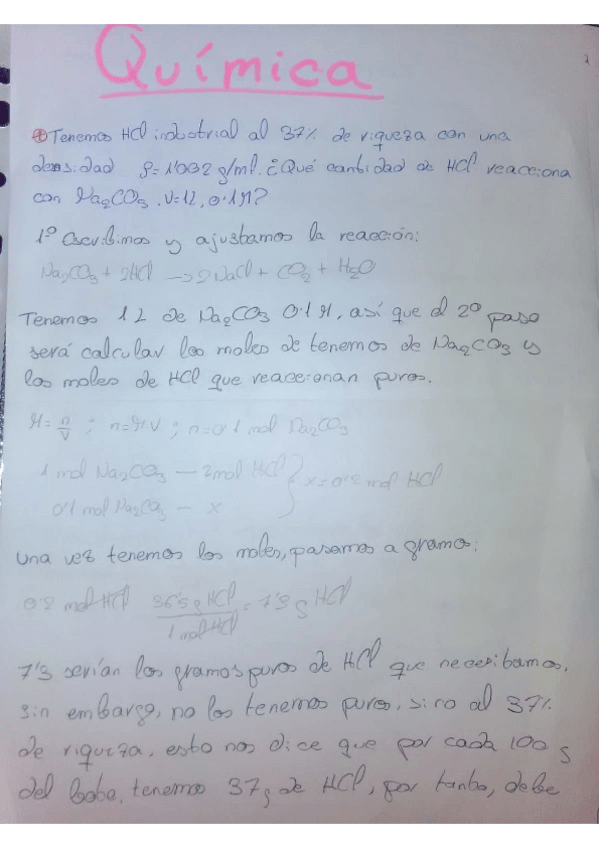 Química
Tenemos HCl industrial al 37% de riqueza con una
densidad ρ=1'002 g/ml. ¿Qué cantidad de HCl reacciona
con Na₂CO₃. V=1L, 0'1M?
1º Escribimos y ajustamos la reacción:
Na₂CO₃ + 2HCl → 2NaCl + CO₂ + H₂O
Tenemos 1L de Na₂CO₃ 0'1M, así que el 2º paso
será calcular los moles de tenemos de Na₂CO₃ y
los moles de HCl que reaccionan puros.
M = n/V ; n=M·V ; n=0'1 mol Na₂CO₃
1 mol Na₂CO₃ — 2mol HCl } x=0'2 mol HCl
0'1 mol Na₂CO₃ — x
Una vez tenemos los moles, pasamos a gramos:
0'2 mol HCl 36'5g HCl / 1 mol HCl = 7'3 g HCl
7'3 serían los gramos puros de HCl que necesitamos,
sin embargo, no los tenemos puros, sino al 37%
de riqueza, esto nos dice que por cada 100 g
del bote, tenemos 37g de HCl, por tanto, debe